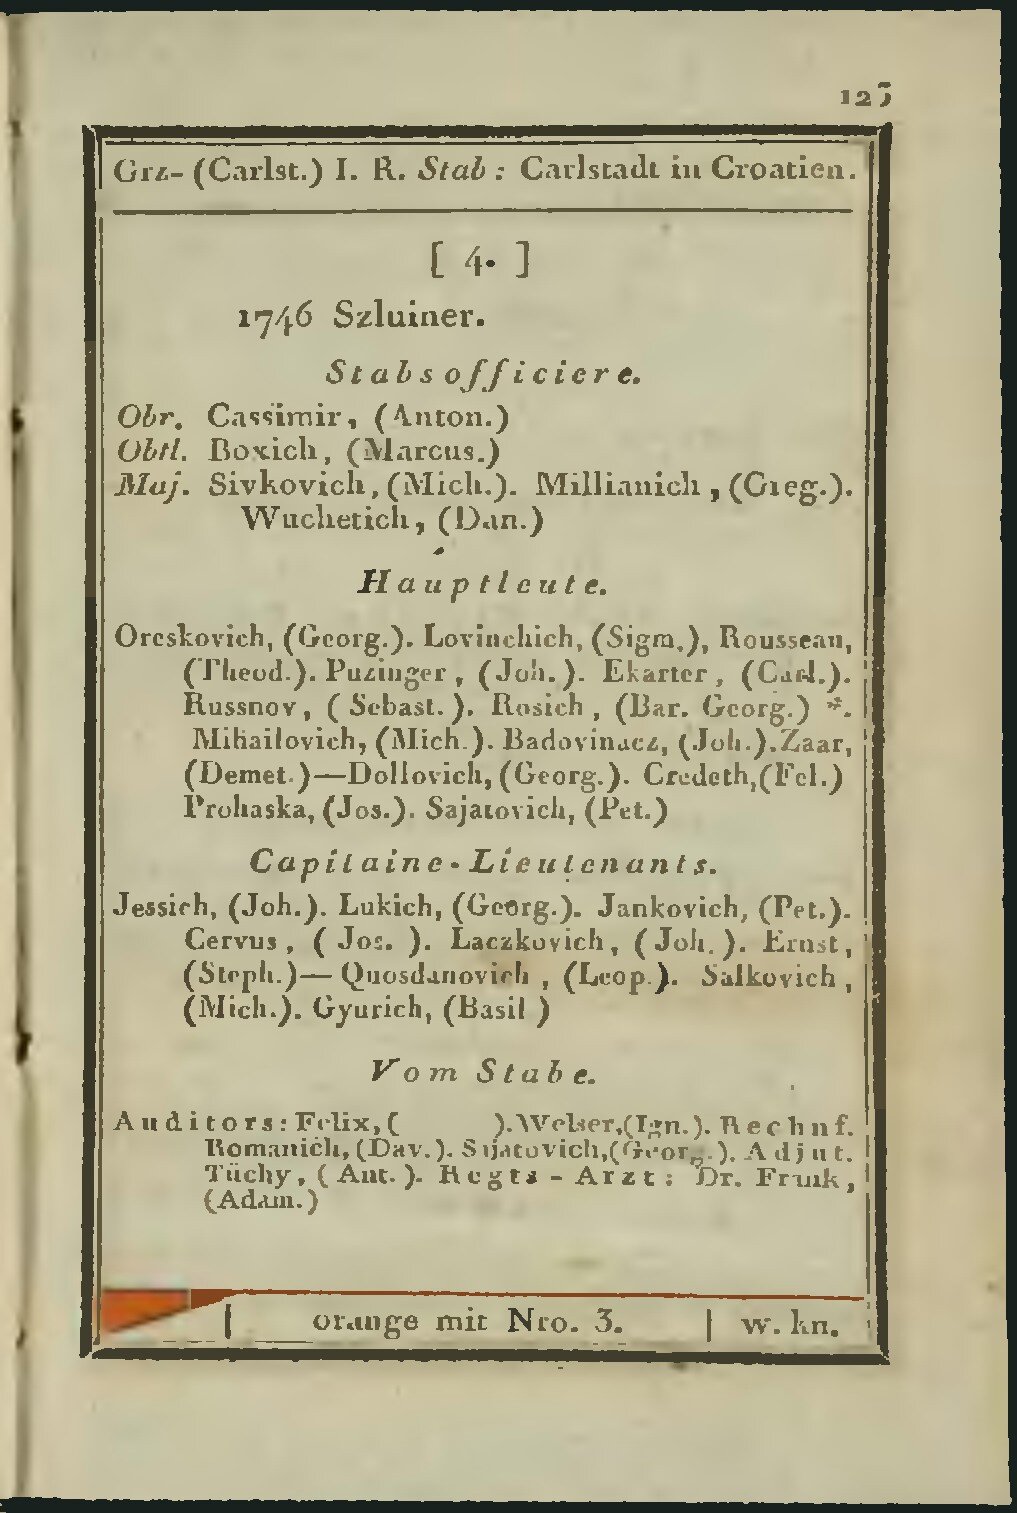 125
Grz- (Carlst.) I. R. Stab : Carlstadt in Croatien.
[ 4. ]
1746 Szluiner.
Stabsofficiere.
Obr. Cassimir, (Anton.)
Obtl. Boxich, (Marcus.)
Maj. Sivkovich, (Mich.). Millianich, (Greg.).
Wuchetich, (Dan.)
Hauptleute.
Oreskovich, (Georg.). Lovinchich, (Sigm.), Rousseau,
(Theod.). Puzinger, (Joh.). Ekarter, (Carl.).
Russnov, ( Sebast. ). Rosich, (Bar. Georg.) *.
Mihailovich, (Mich.). Badovinacz, (Joh.). Zaar,
(Demet.)—Dollovich, (Georg.). Credeth, (Fel.)
Prohaska, (Jos.). Sajatovich, (Pet.)
Capitaine-Lieutenants.
Jessich, (Joh.). Lukich, (Georg.). Jankovich, (Pet.).
Cervus, ( Jos. ). Laczkovich, (Joh.). Ernst,
(Steph.)— Quosdanovich, (Leop.). Salkovich,
(Mich.). Gyurich, (Basil )
Vom Stabe.
Auditors: Felix, ( ). Welser, (Ign.). Rechnf.
Romanich, (Dav.). Sijatovich, (Georg.). Adjut.
Tüchy, ( Ant. ). Regts - Arzt : Dr. Frank,
(Adam.)
orange mit Nro. 3. | w. kn.